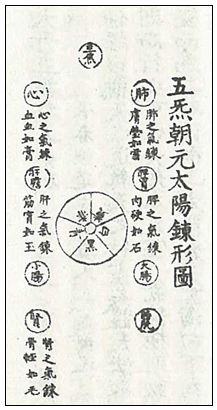 五炁朝元太陽鍊形圖
三焦
肺
肺之氣鍊
膚瑩如雪
脾胃
脾之氣鍊
肉硬如石
大腸
黑
心
心之氣鍊
血血如膏
肝膽
肝之氣鍊
筋實如玉
小腸
腎
腎之氣鍊
骨輕如毛